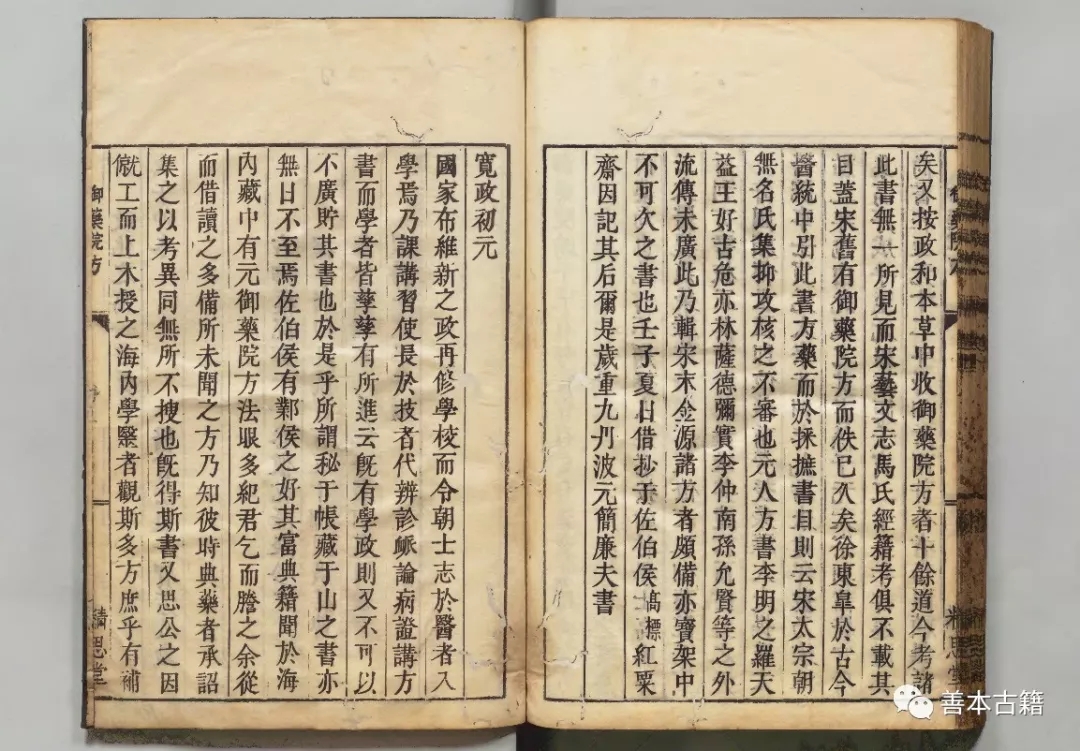 矣又按政和本草中收御藥院方者十餘道今考諸
此書無一所見而宋藝文志馬氏經籍考俱不載其
目蓋宋舊有御藥院方而佚已久矣徐東皐於古今
醫統中引此書方藥而於採摭書目則云宋太宗朝
無名氏集抑攻核之不審也元人方書李明之羅天
益王好古危亦林薩德彌實李仲南孫允賢等之外
流傳未廣此乃輯宋末金源諸方者頗備亦寶架中
不可欠之書也壬子夏日借抄于佐伯侯高標紅粟
齋因記其后爾是歲重九丹波元簡廉夫書
寬政初元
國家布維新之政再修學校而令朝士志於醫者入
學焉乃課講習使長於技者代辨診衇論病證講方
書而學者皆孳孳有所進云旣有學政則又不可以
不廣貯其書也於是乎所謂秘于帳藏于山之書亦
無日不至焉佐伯侯有鄴侯之好其富典籍聞於海
內藏中有元御藥院方法眼多紀君乞而謄之余從
而借讀之多備所未聞之方乃知彼時典藥者承詔
集之以考異同無所不搜也旣得斯書又思公之因
僦工而上木授之海內學毉者觀斯多方庶乎有補
御藥院方
精思堂
精思堂
善本古籍